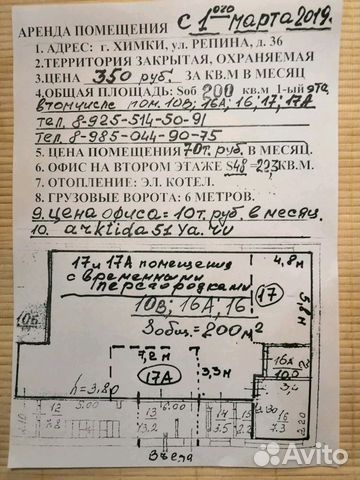 АРЕНДА ПОМЕЩЕНИЯ С 1ого марта 2019г.
1. АДРЕС: г. ХИМКИ, ул. РЕПИНА, д. 36
2.ТЕРРИТОРИЯ ЗАКРЫТАЯ, ОХРАНЯЕМАЯ
3.ЦЕНА 350 руб. ЗА КВ.М В МЕСЯЦ
4.ОБЩАЯ ПЛОЩАДЬ: Sоб 200 кв.м 1-ый этаж
в том числе пом. 10В; 16А; 16; 17; 17А
тел. 8-925-514-50-91
тел. 8-985-044-90-75
5. ЦЕНА ПОМЕЩЕНИЯ 70 т. руб. В МЕСЯЦ.
6. ОФИС НА ВТОРОМ ЭТАЖЕ S48 =22,3 КВ.М.
7. ОТОПЛЕНИЕ: ЭЛ. КОТЕЛ.
8. ГРУЗОВЫЕ ВОРОТА: 6 МЕТРОВ.
9. цена офиса = 10 т. руб в месяц.
10. arktida51Ya.ru
17 и 17А помещения
с временными
перегородками
10В; 16А; 16
4,8 м
17
5,8 м
Sобщ. = 200 м²
10Б
7,2 м
16А
10,0
h=3,80
17А
3,3 м
3,4
12
7.8
5.00
13
13,2
6.00
14
3.5
15
2.2
3.30
16
7.3
2.20
Въезд
Avito